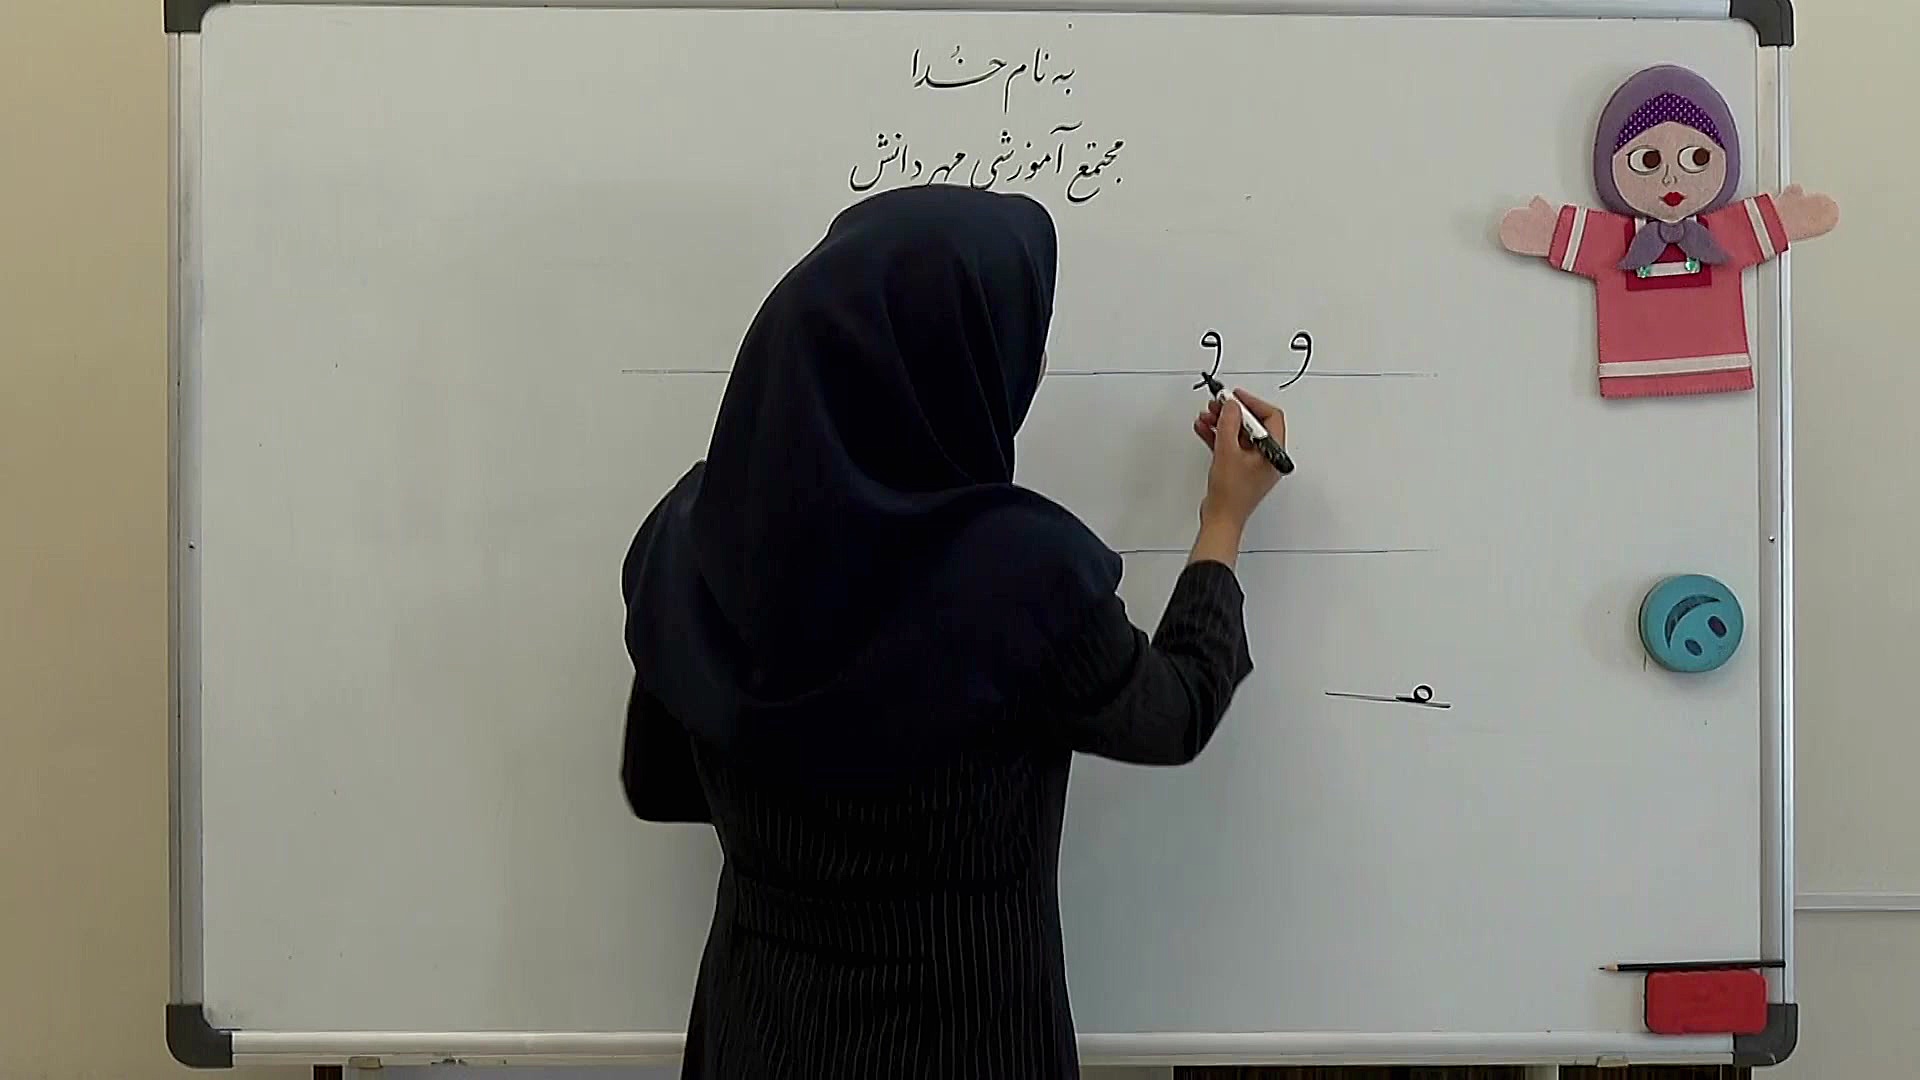 به نام خُدا
مجتمع آموزشی مهر دانش
و و
مـ